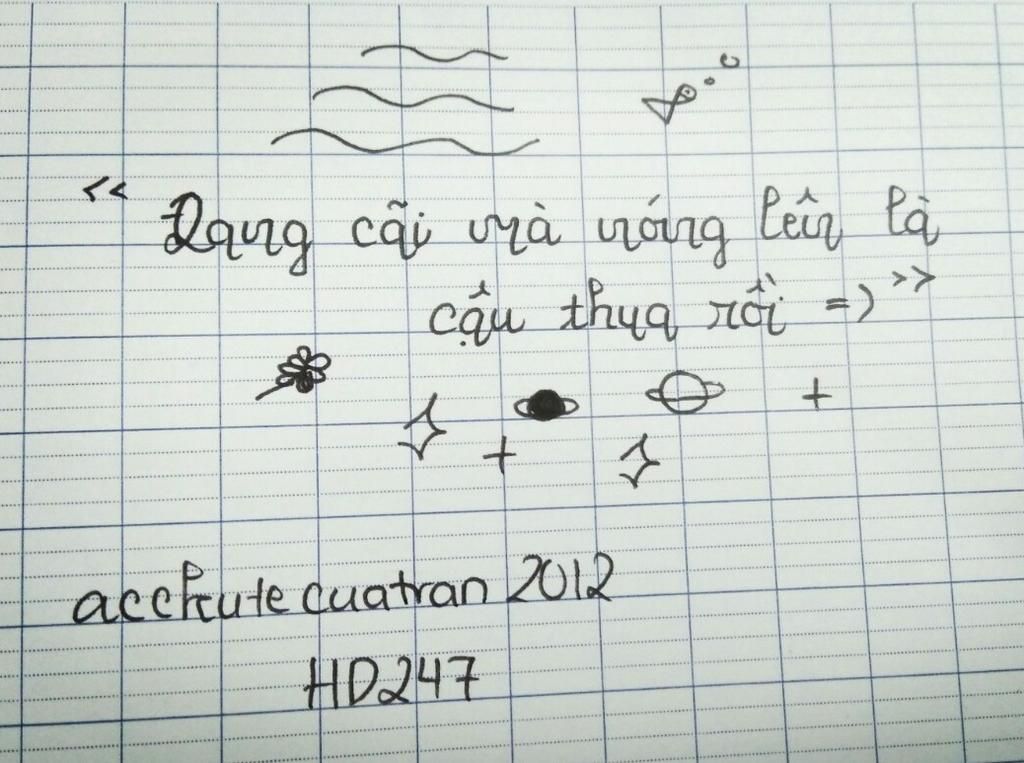 << Đang cãi mà nóng lên là
cậu thua rồi =) >>
acckutecuatran 2012
HD247